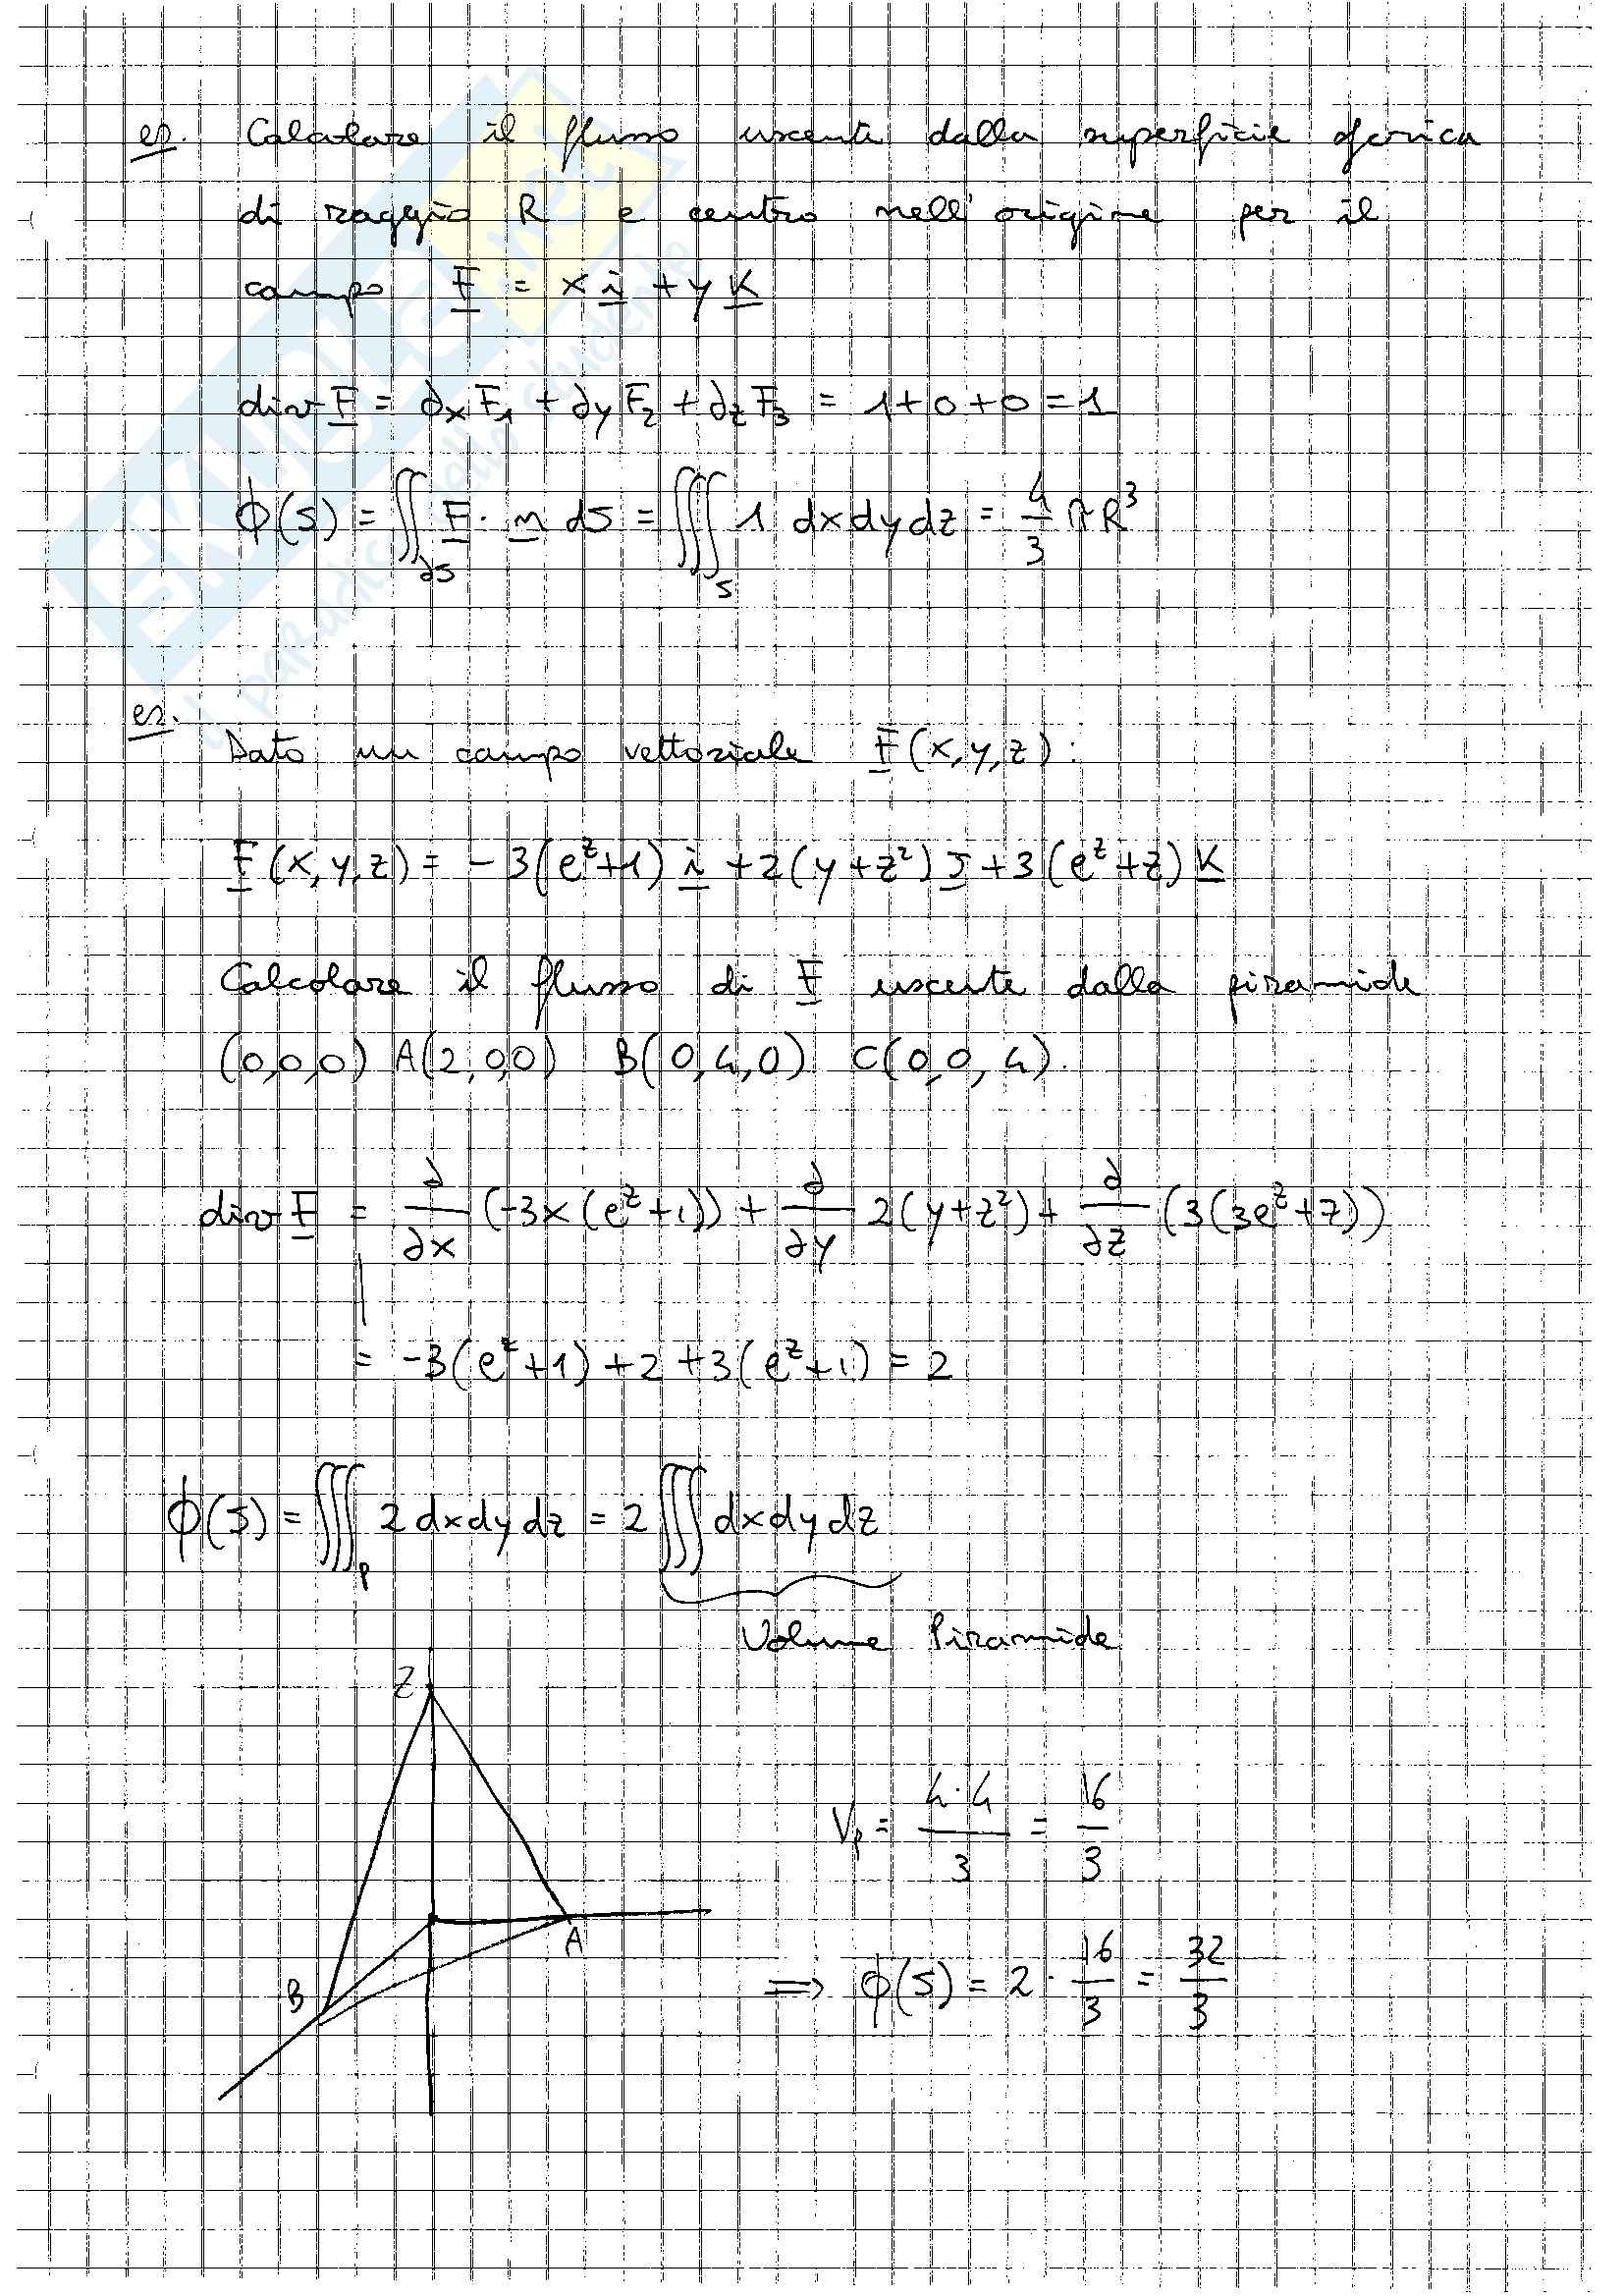 es. Calcolare il flusso uscente dalla superficie sferica
di raggio R e centro nell'origine per il
campo F = x i + y K
div F = ∂x F1 + ∂y F2 + ∂z F3 = 1+0+0 = 1
ϕ(S) = ∬∂S F · n dS = ∭S 1 dxdydz = 4/3 πR³
es.
Dato un campo vettoriale F(x,y,z):
F(x,y,z) = -3(e^z+1) i + 2(y+z²) J + 3(e^z+z) K
Calcolare il flusso di F uscente dalla piramide
(0,0,0) A(2,0,0) B(0,4,0) C(0,0,4).
div F = ∂/∂x (-3x(e^z+1)) + ∂/∂y 2(y+z²) + ∂/∂z (3(3e^z+z))
= -3(e^z+1)+2+3(e^z+1) = 2
ϕ(S) = ∭P 2dxdydz = 2∭dxdydz
Volume Piramide
Z
Vp = 4·4/3 = 16/3
A
B
⟹ ϕ(S) = 2 · 16/3 = 32/3
SKUOLA.net
il paradiso dello studente